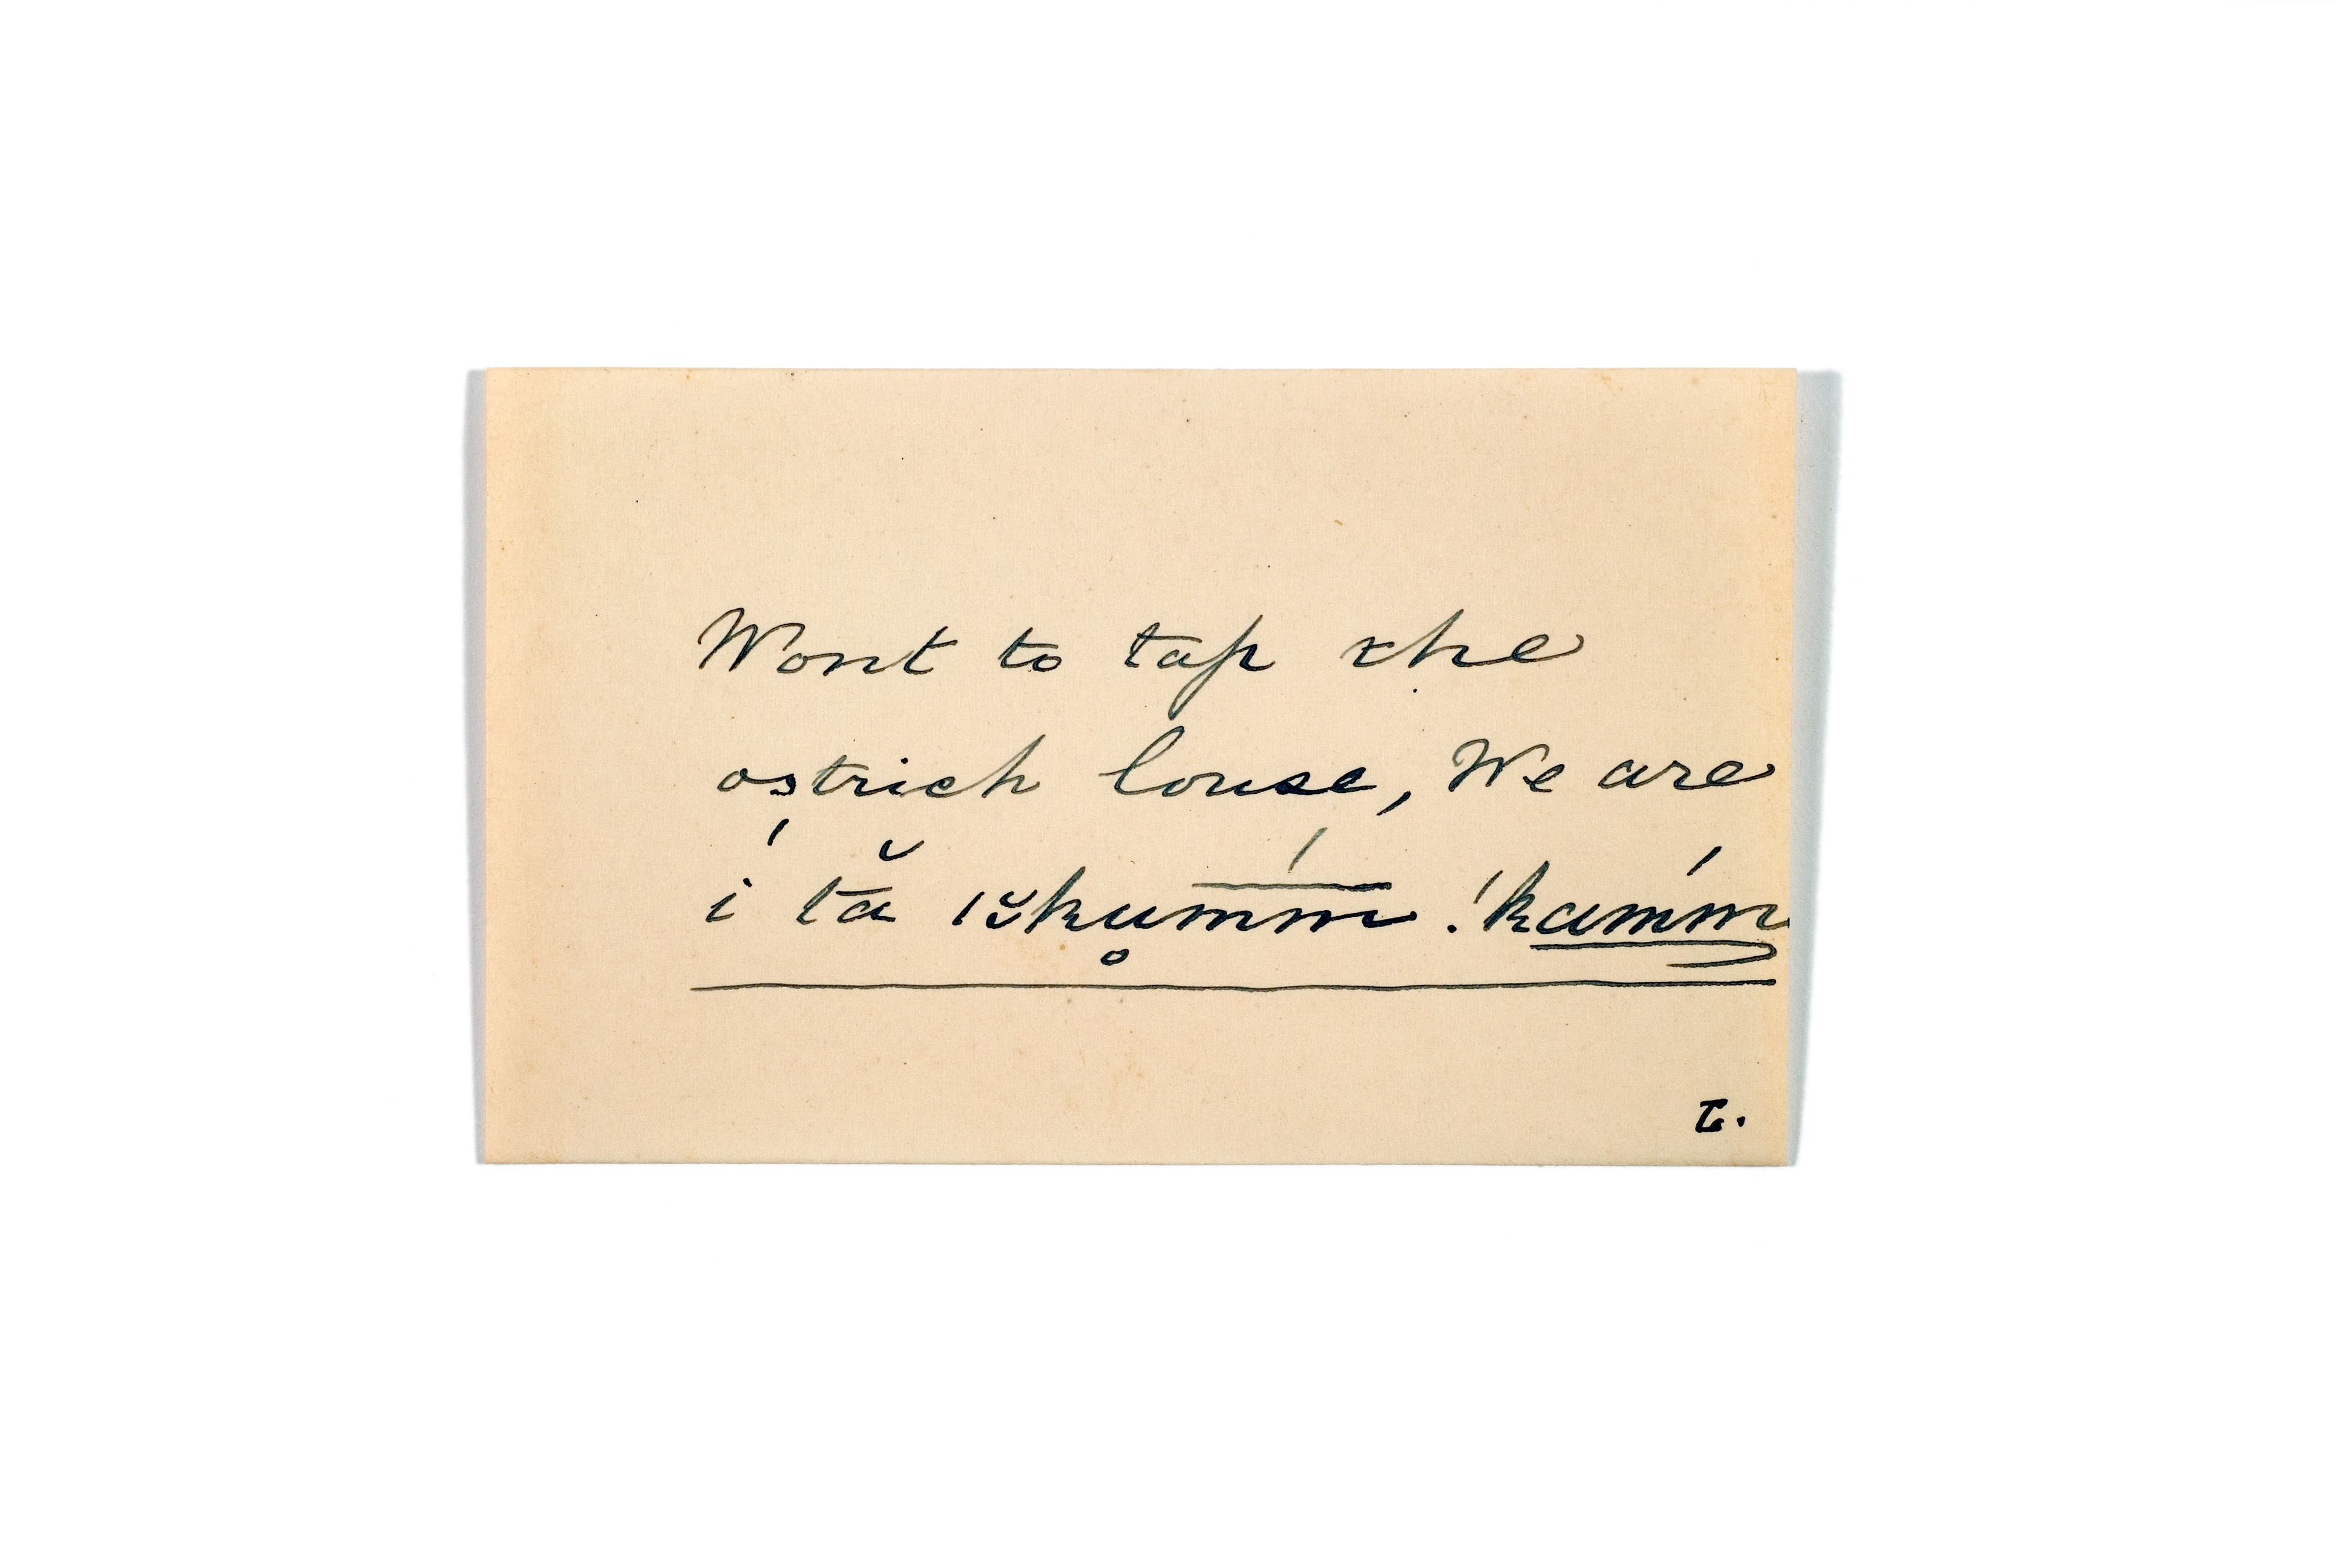 Wont to tap the
ostrich louse, We are
í tă ǀɜ̆kụmḿ ! kamḿ
T.